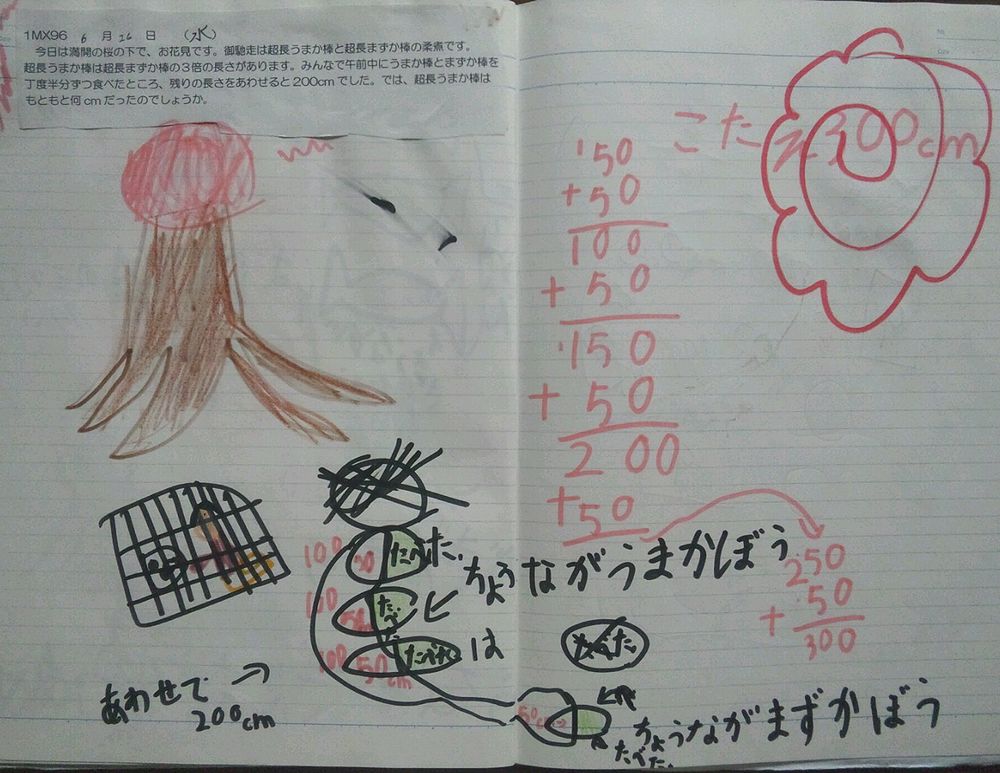 1MX96 6月26日 (水)
今日は満開の桜の下で、お花見です。御馳走は超長うまか棒と超長まずか棒の柔煮です。
超長うまか棒は超長まずか棒の3倍の長さがあります。みんなで午前中にうまか棒とまずか棒を
丁度半分ずつ食べたところ、残りの長さをあわせると200cmでした。では、超長うまか棒は
もともと何cmだったのでしょうか。
こたえ300cm
50
+50
100
+50
150
+50
200
+50
250
+50
300
100 50 たべた。
ちょうながうまかぼう
100 50 たべ
100 50cm たべた は
あわせて
200cm
たべた
50cm
ちょうながまずかぼう
たべた。